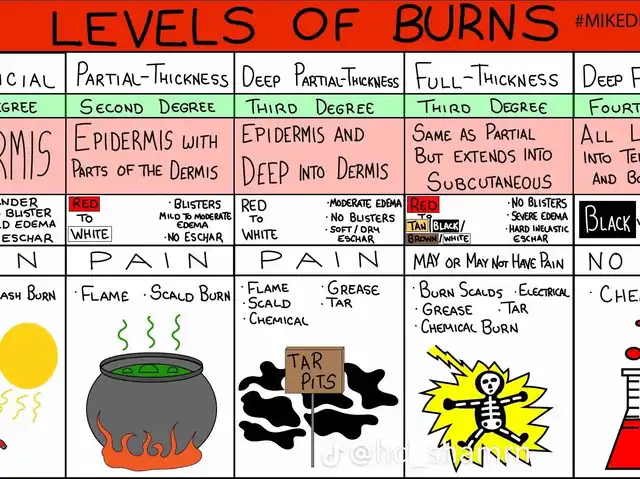 LEVELS OF BURNS
#MIKED
ICIAL
PARTIAL-THICKNESS
DEEP PARTIAL-THICKNESS
FULL-THICKNESS
DEEP F
EGREE
SECOND DEGREE
THIRD DEGREE
THIRD DEGREE
FOURT
RMIS
EPIDERMIS WITH
PARTS OF THE DERMIS
EPIDERMIS AND
DEEP INTO DERMIS
SAME AS PARTIAL
BUT EXTENDS INTO
SUBCUTANEOUS
ALL L
INTO TE
AND BO
NDER
BLISTER
D EDEMA
ESCHAR
RED
TO
WHITE
· BLISTERS
MILD TO MODERATE
EDEMA
· NO ESCHAR
RED
TO
WHITE
· MODERATE EDEMA
· NO BLISTERS
· SOFT/DRY
ESCHAR
RED
TO
TAN BLACK/
BROWN/WHITE
· NO BLISTERS
· SEVERE EDEMA
· HARD INELASTIC
ESCHAR
BLACK
N
PAIN
PAIN
MAY OR MAY NOT HAVE PAIN
NO
ASH BURN
· FLAME · SCALD BURN
· FLAME
· SCALD
· CHEMICAL
· GREASE
· TAR
· BURN SCALDS · ELECTRICAL
· GREASE · TAR
· CHEMICAL BURN
· CHE
TAR
PITS
@hd_shamm